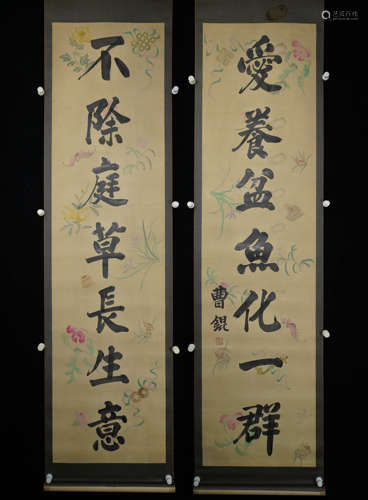 愛養盆魚化一群
曹錕
不除庭草長生意